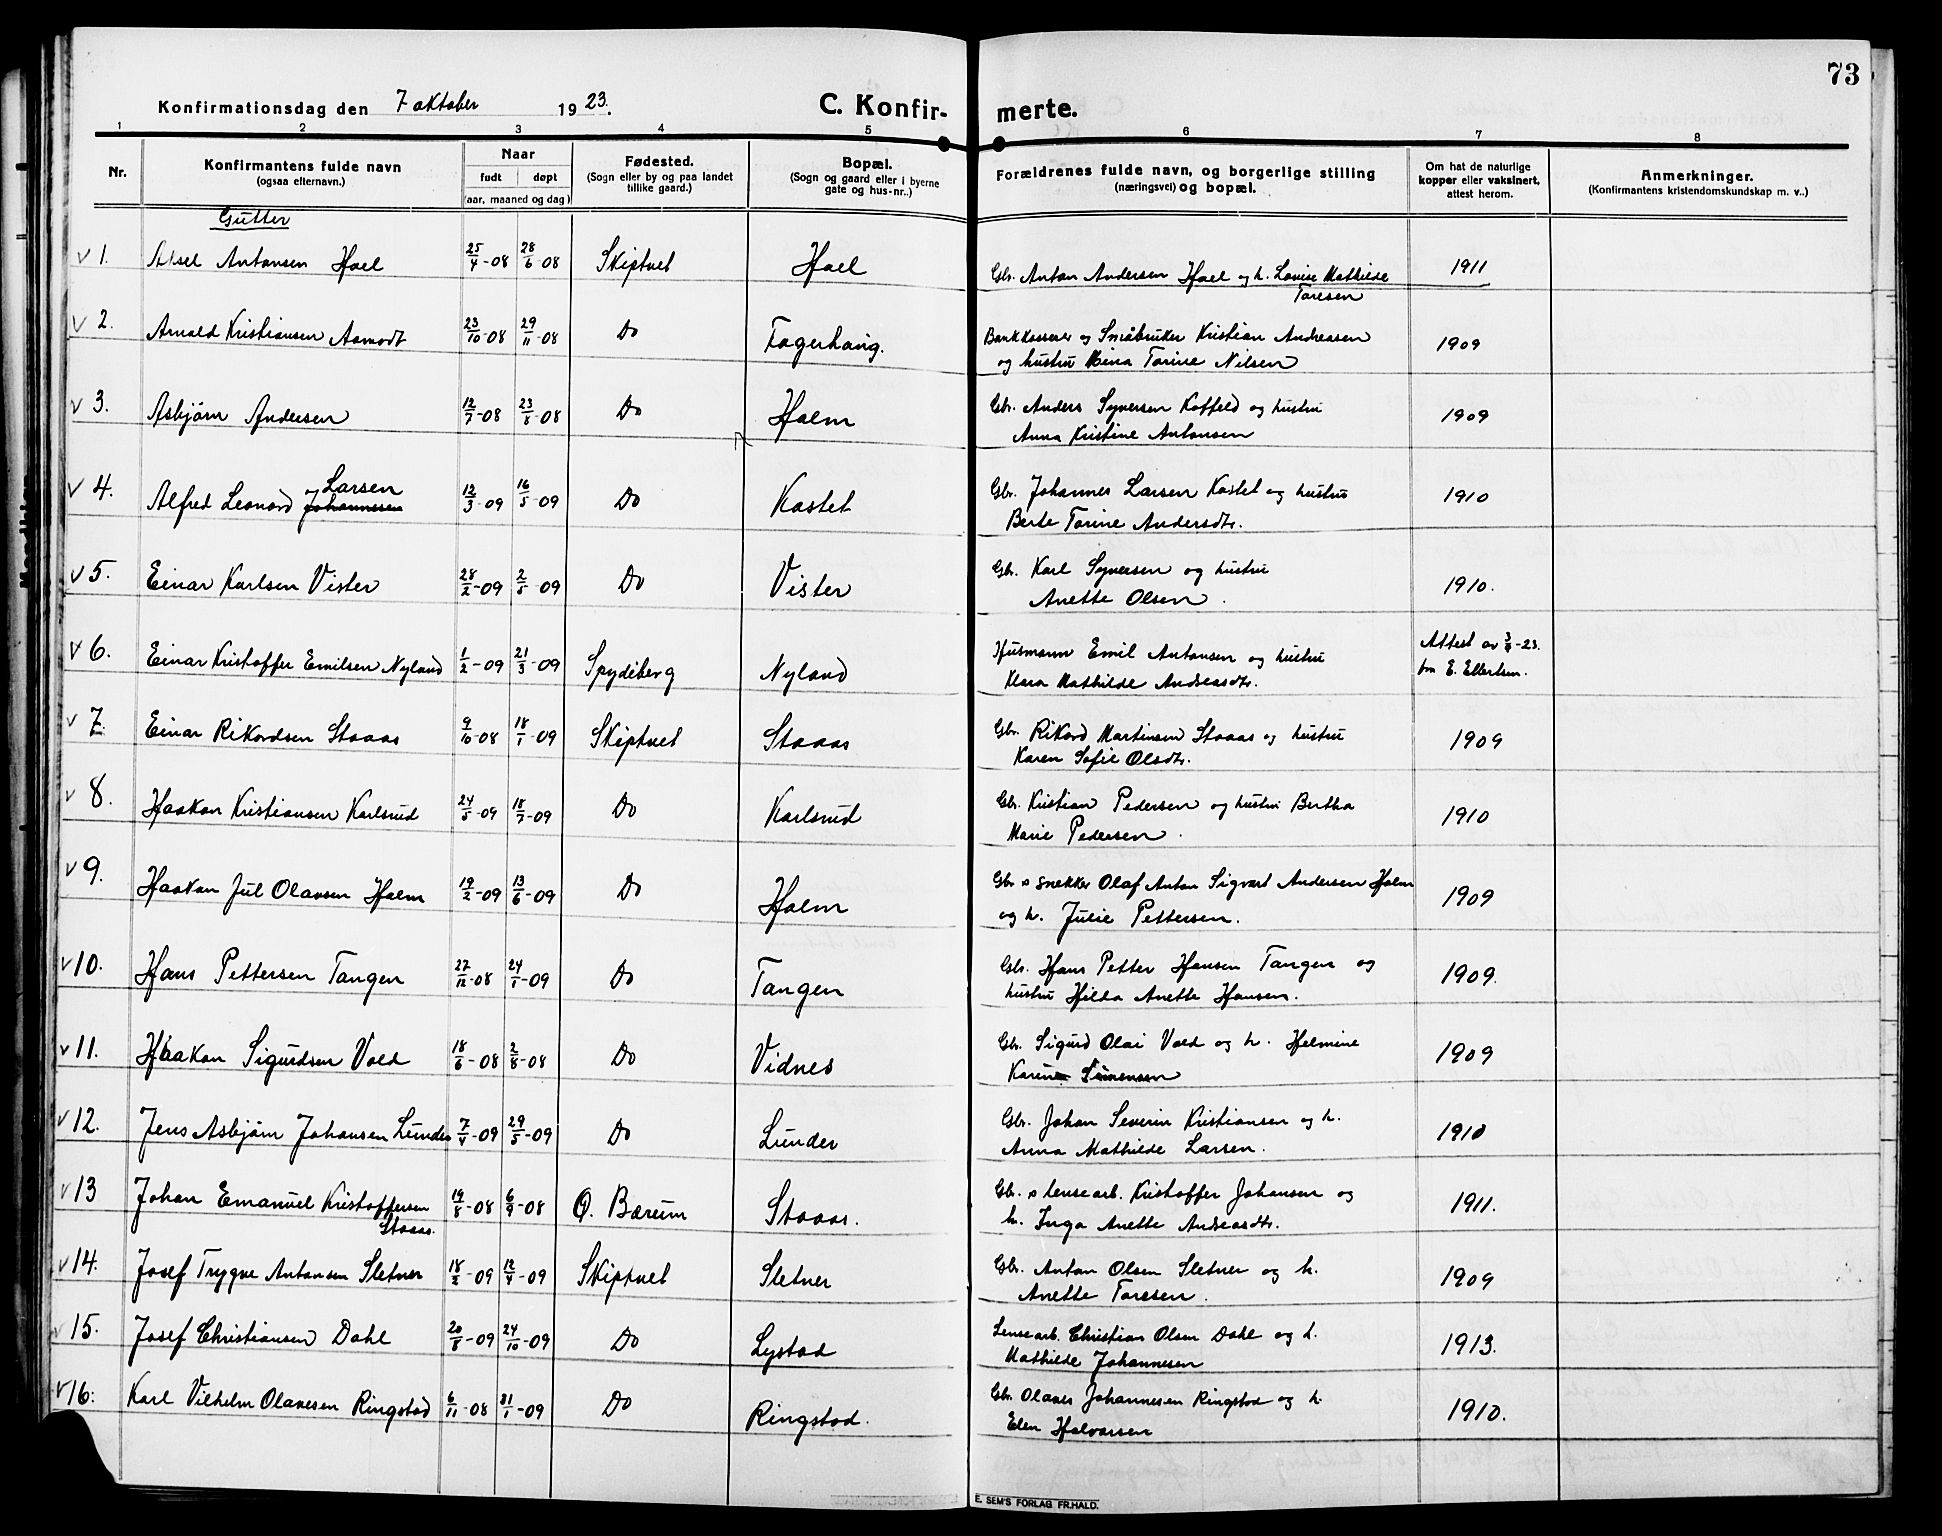 73
Konfirmationsdag den 7 oktober 1923.
C. Konfirmerte.
1 2 3 4 5 6 7 8
Nr.
Konfirmantens fulde navn
(ogsaa efternavn.)
Naar
født døpt
(aar, maaned og dag)
Fødested.
(Sogn eller by og paa landet
tillike gaard.)
Bopæl.
(Sogn og gaard eller i byerne
gate og hus-nr..)
Forældrenes fulde navn, og borgerlige stilling
(næringsvei) og bopæl.
Om hat de naturlige
kopper eller vaksinert,
attest herom.
Anmerkninger.
(Konfirmantens kristendomskundskap m. v..)
Gutter
v 1. Aksel Antonsen Hoel 25/4-08 28/6-08 Skiptvet Hoel Gbr. Anton Andersen Hoel og h. Lovise Mathilde 1911
Toresen
v 2. Arnold Kristiansen Aamodt 23/10-08 29/11-08 Do Fagerhaug. Bankkasserer og Småbruker Kristian Andreassen 1909
og hustru Mina Torine Nilsen
v 3. Asbjørn Andersen 12/7-08 23/8-08 Do Holm Gbr. Anders Syversen Koffeld og hustru 1909
Anna Kristine Antonsen
v 4. Alfred Leonard Johannesen Larsen 12/3-09 16/5-09 Do Kastet Gbr. Johannes Larsen Kastet og hustru 1910
Berte Torine Andersdtr.
v 5. Einar Karlsen Vister 28/2-09 2/5-09 Do Vister Gbr. Karl Syversen og hustru 1910.
Anette Olsen.
v 6. Einar Kristoffer Emilsen Nyland 1/2-09 21/3-09 Spydeberg Nyland Husmann Emil Antonsen og hustru Attest av 3/4-23.
Klara Mathilde Andreasdtr. fra E. Ellertsen.
v 7. Einar Rikardsen Staaas 9/10-08 18/1-09 Skiptvet Staaas Gbr. Rikard Martinsen Staaas og hustru 1909
Karen Sofie Olsdtr.
v 8. Haakon Kristiansen Karlsrud 24/5-09 18/7-09 Do Karlsrud Gbr. Kristian Pedersen og hustru Bertha 1910
Marie Pedersen.
v 9. Haakon Jul Olavsen Holm 19/2-09 13/6-09 Do Holm Gbr & snekker Olaf Anton Sigvart Andersen Holm 1909
og h. Julie Pettersen.
v 10. Hans Pettersen Tangen 27/12-08 24/1-09 Do Tangen Gbr. Hans Petter Hansen Tangen og 1909.
hustru Hilda Anette Hansen.
v 11. Haakon Sigurdsen Vold 18/6-08 2/8-08 Do Vidnes Gbr. Sigurd Olai Vold og h. Helmine 1909
Karine Simensen
v 12. Jens Asbjørn Johansen Lunder 7/4-09 29/5-09 Do Lunder Gbr. Johan Severin Kristiansen og h. 1910
Anna Mathilde Larsen.
v 13 Johan Emanuel Kristoffersen 19/8-08 6/9-08 Ø. Bærum Staaas. Gbr. & lensearb. Kristoffer Johansen og 1911.
Staaas. h. Inga Anette Andreasdtr.
v 14. Josef Trygve Antonsen Sletner 18/2-09 12/4-09 Skiptvet Sletner Gbr. Anton Olsen Sletner og h. 1909
Anette Toresen.
v 15. Josef Christiansen Dahl 20/8-09 24/10-09 Do Lystad Lensearb. Christian Olsen Dahl og h. 1913.
Mathilde Johannesen
v 16. Karl Vilhelm Olavesen Ringstad 6/11-08 31/1-09 Do Ringstad. Gbr. Olaves Johannesen Ringstad og h. 1910.
Elen Halvorsen
E. SEM'S FORLAG FR.HALD.